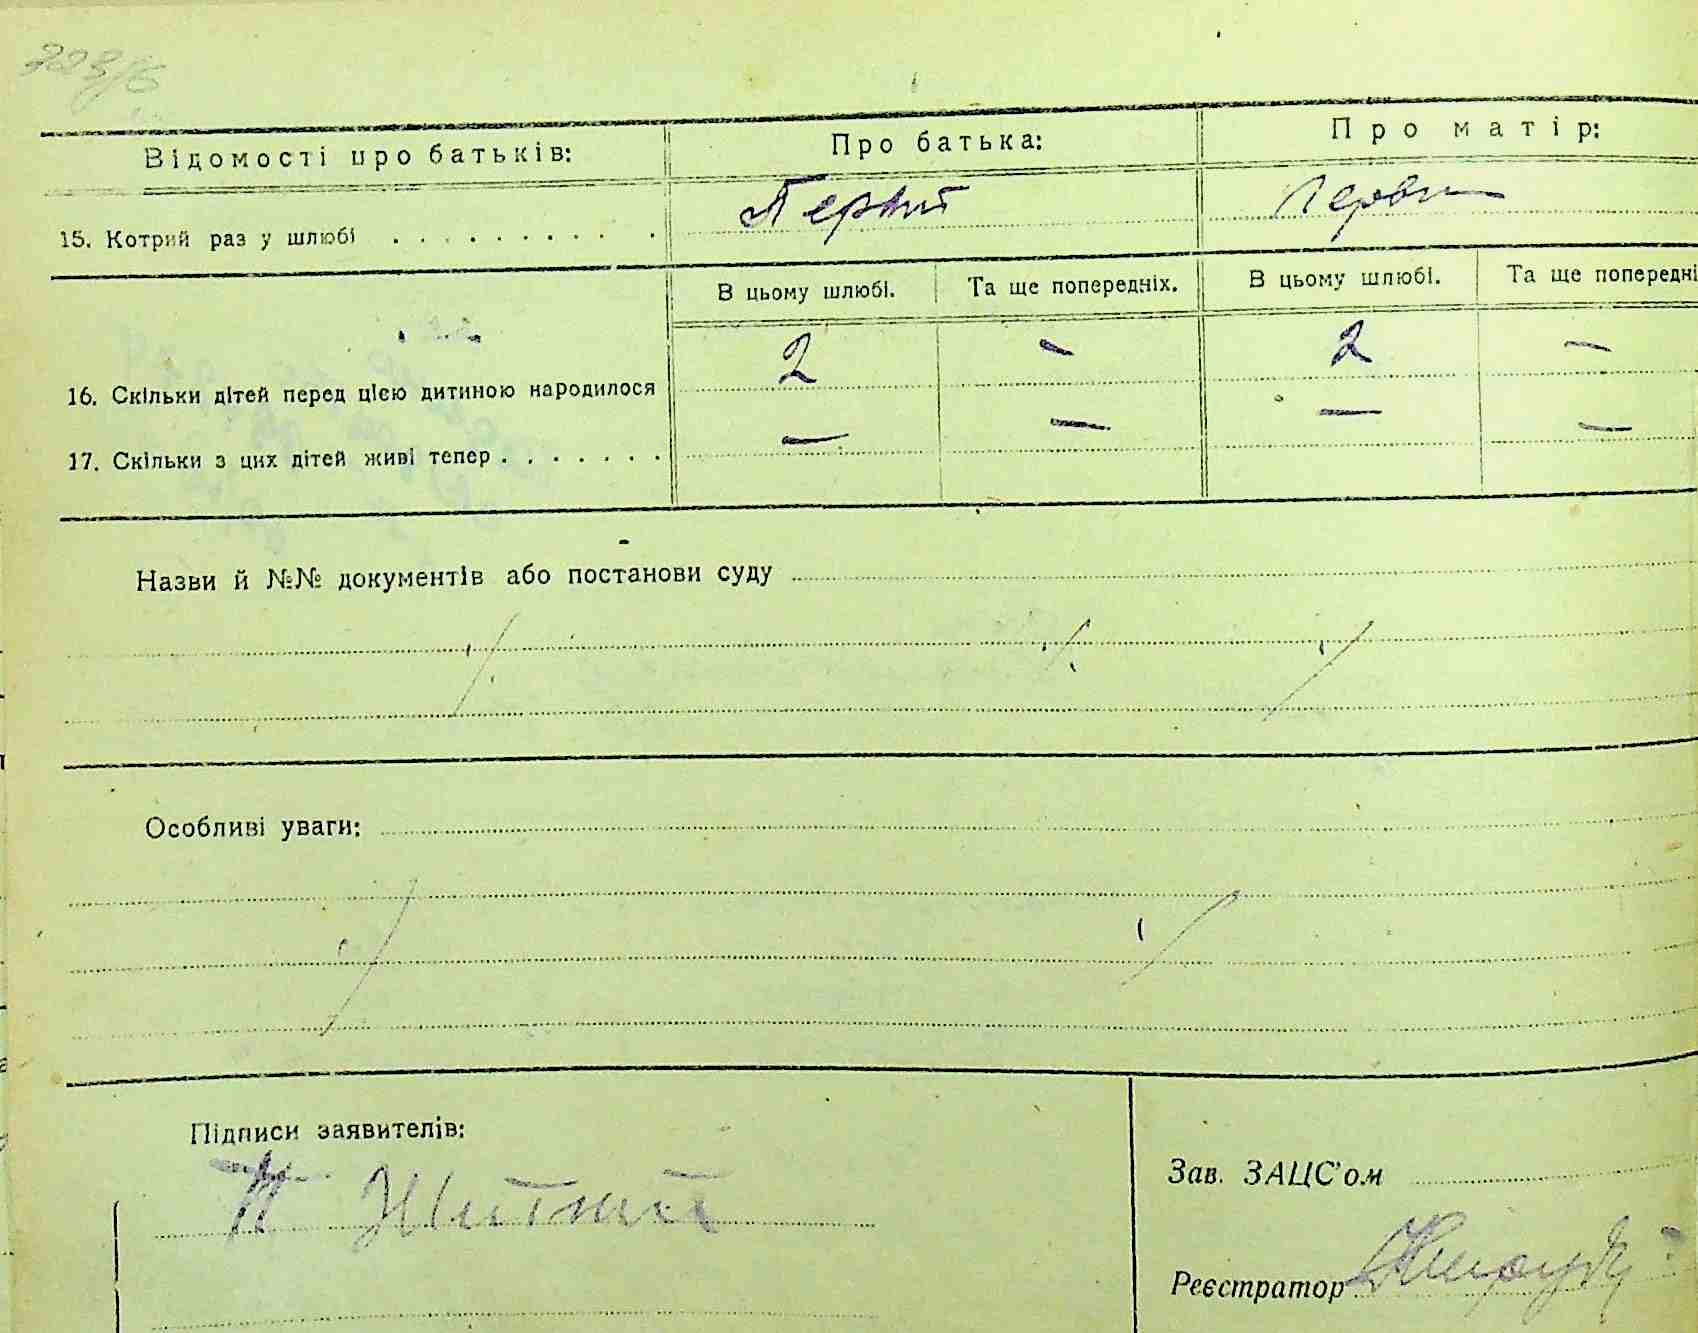 Відомості про батьків: Про батька: Про матір:
15. Котрий раз у шлюбі . . . . . . . . . . Первий Перви
В цьому шлюбі. Та ще попередніх. В цьому шлюбі. Та ще попередні
16. Скільки дітей перед цією дитиною народилося 2 – 2 –
17. Скільки з цих дітей живі тепер . . . . . . . – – – –
Назви й №№ документів або постанови суду
Особливі уваги:
Підписи заявителів:
Житний
Зав. ЗАЦС'ом
Реєстратор